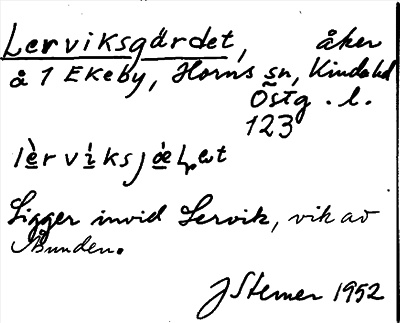 Lerviksgärdet, åker
å 1 Ekeby, Horns sn, Kinda hd
Östg. l.
123
lèrviksjä
Ligger invid Lervik, vik av
Åsunden.
J Sterner 1952